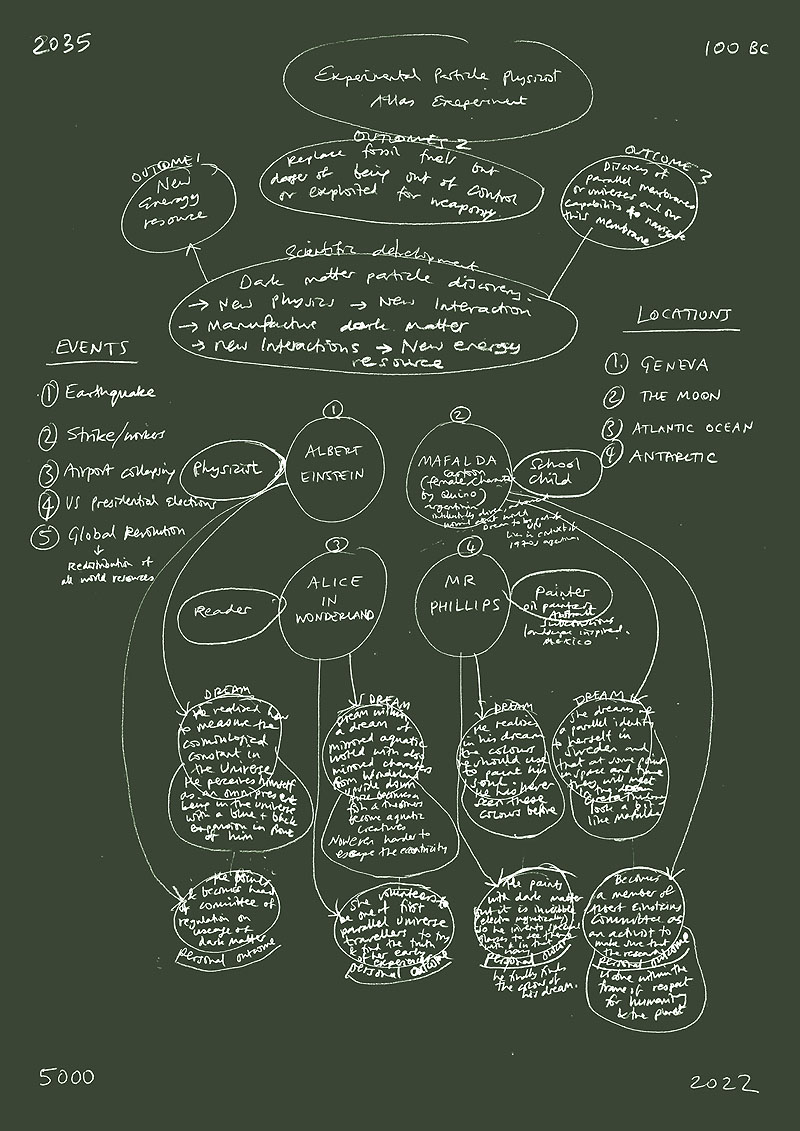 2035
100 BC
Experimental Particle Physicist
Atlas Experiment
OUTCOME 2
Replace fossil fuels but
danger of being out of control
or exploited for weaponry
OUTCOME 1
New
Energy
resource
OUTCOME 3
Discovery of
parallel membranes
or universes and our
capability to navigate
this membrane
Scientific development
Dark matter particle discovery.
→ New physics → New Interaction
→ Manufacture dark matter
→ new Interactions → New energy
resource
EVENTS
① Earthquake
② Strike/workers
③ Airport collapsing
④ US Presidential Elections
⑤ Global Revolution
↓
Redistribution of
all world resources
LOCATIONS
① GENEVA
② THE MOON
③ ATLANTIC OCEAN
④ ANTARCTIC
①
ALBERT
EINSTEIN
Physicist
②
MAFALDA
cartoon
(female character
by Quino)
argentinian
School
child
1970s
③
ALICE
IN
WONDERLAND
Reader
④
MR
PHILLIPS
Painter
oil painter
Abstract
subconscious
landscape inspired.
Mexico
DREAM
He realised how
to measure the
cosmological
constant in
the Universe
He perceives himself
as an omnipresent
being in the universe
with a blue + black
expansion in front
of him
DREAM
Dream within
a dream of
mirrored aquatic
world with also
mirrored characters
from Wonderland
upside down
become aquatic
creatures
However harder to
escape the eccentricity
DREAM
He realises
in his dream
the colour
he should use
to paint his
soul.
He has never
seen these
colours before
DREAM
She dreams of
a parallel identity
to herself in
Sweden and
that at some point
in space and time
they will meet
Greta Thunberg
look a bit
like Mafalda
He becomes head
of committee of
regulation on
useage of
dark matter
Personal outcome
She volunteers to
be one of first
parallel universe
travellers to try
& find the truth
of her early
experience
Personal outcome
He paints
with dark matter
but it is invisible
(electro magnetically)
so he invents special
glasses to see these
Personal outcome
he finally finds
the colours of
his dream.
Becomes
a member of
that Einsteins
Committee as
an activist to
make sure that
the research
Personal outcome
is done within the
frame of respect
for humanity
& the planet
5000
2022